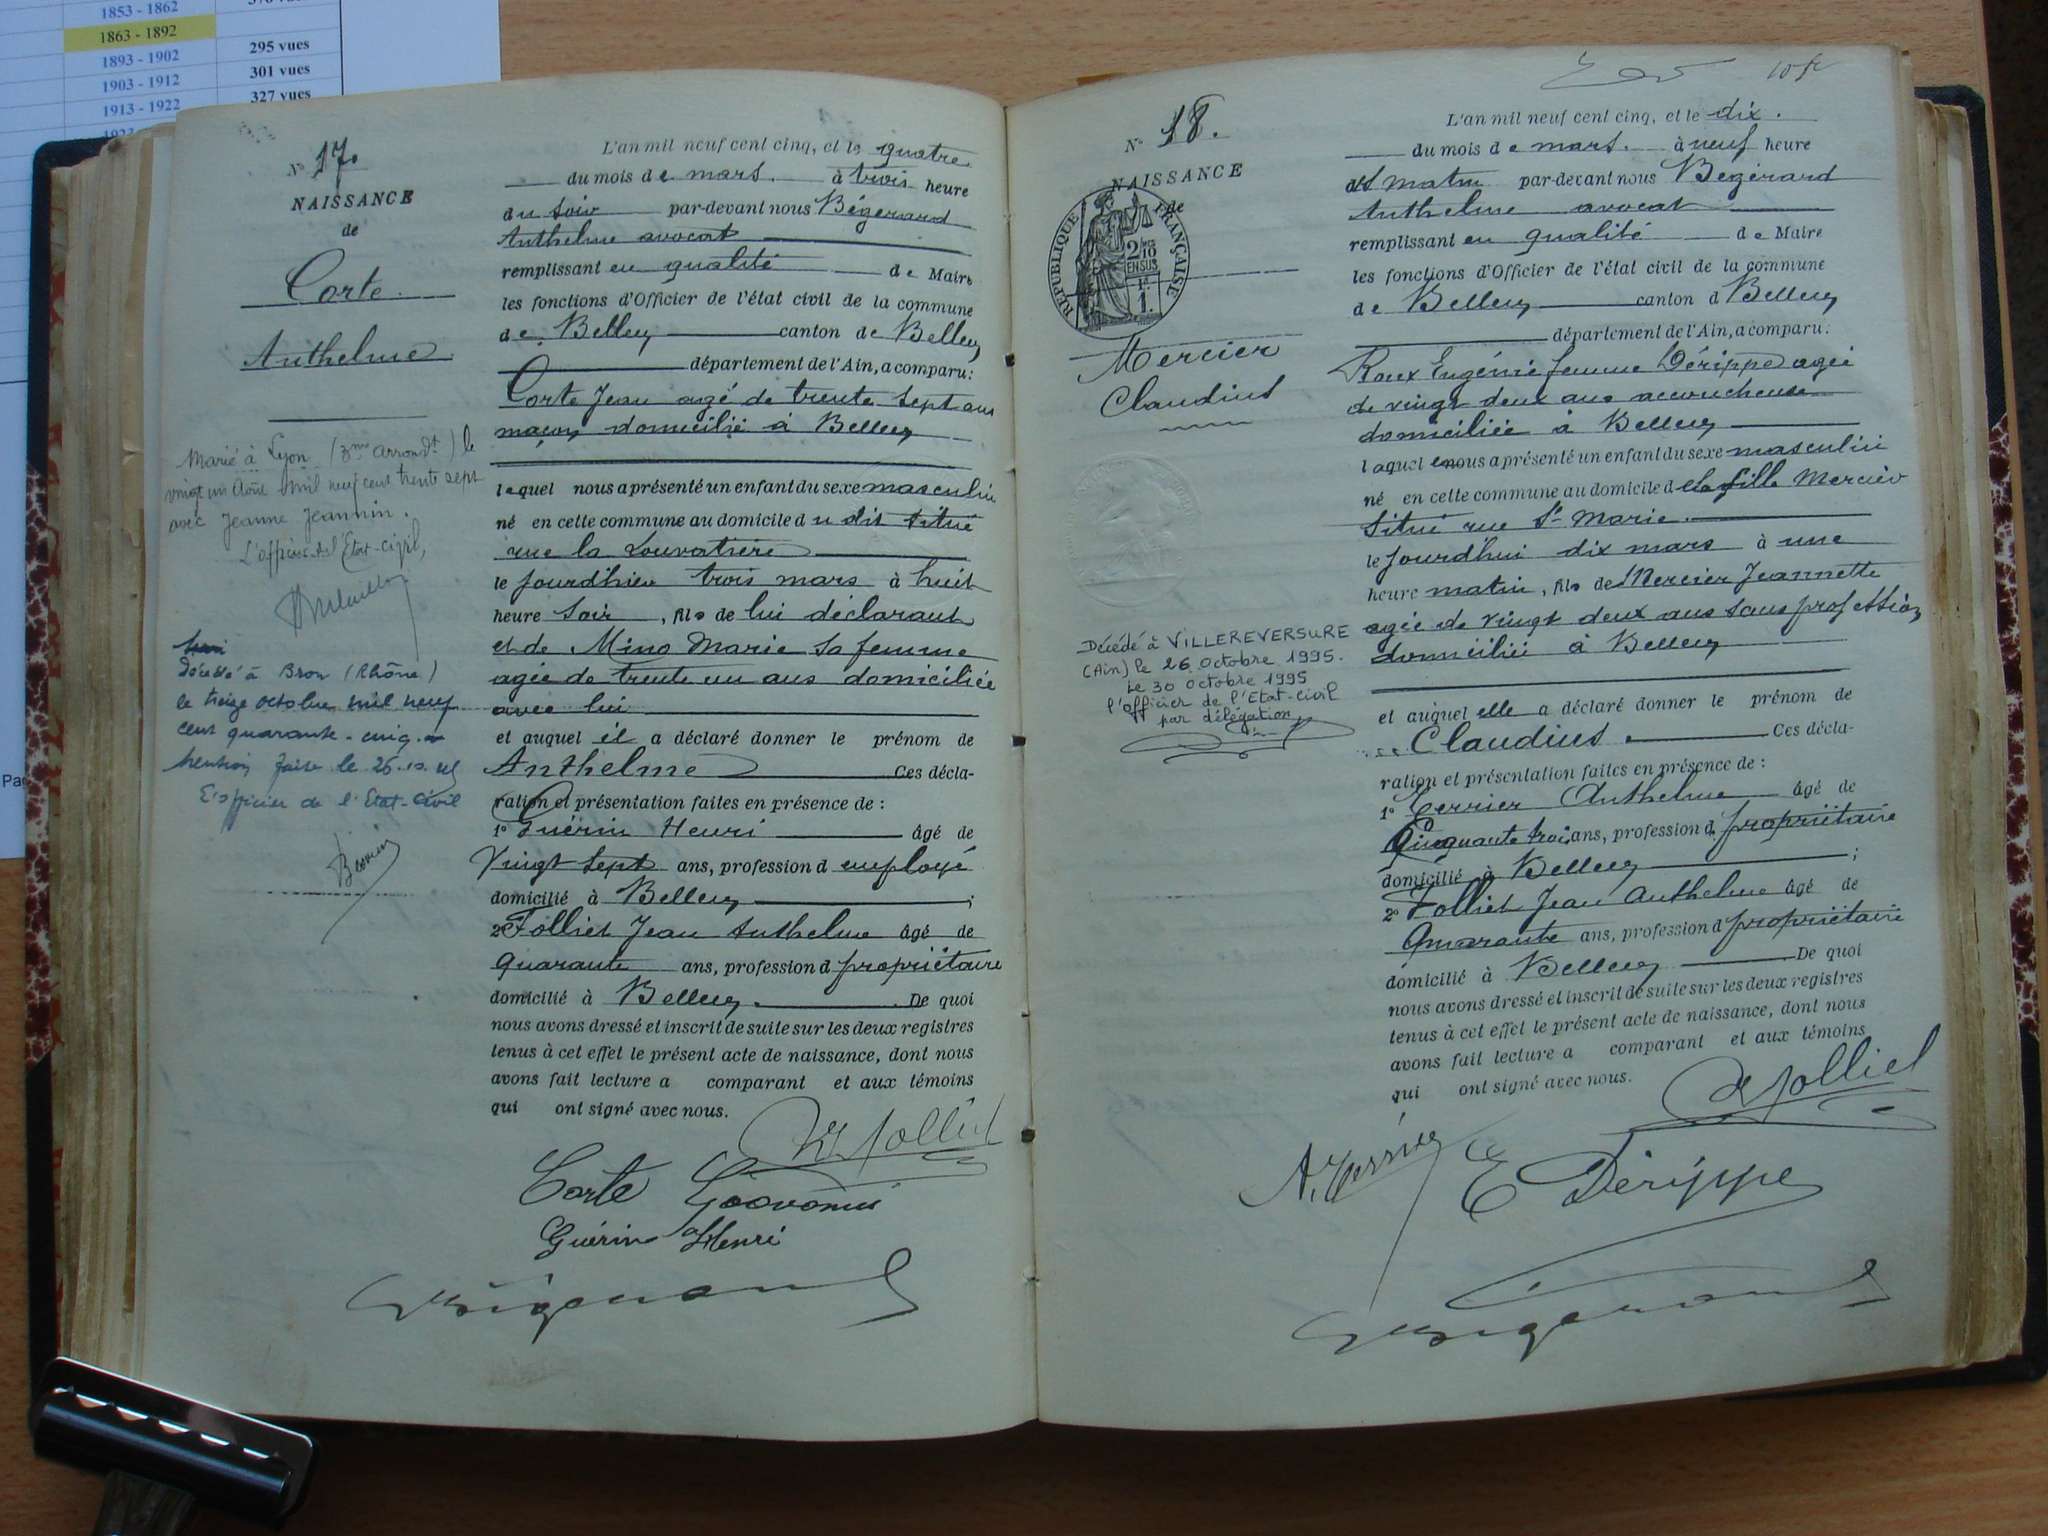 1853 - 1862
1863 - 1892
1893 - 1902 295 vues
1903 - 1912 301 vues
1913 - 1922 327 vues
N° 17.
NAISSANCE
de
Corte
Anthelme
Marié à Lyon (3me arrondt) le
vingt un Août mil neuf cent trente sept
avec Jeanne Jeannin.
L'officier de l'Etat-civil,
décédé à Bron (Rhône)
le treize octobre mil neuf
cent quarante-cinq.
Mention faite le 26.10.45
L'officier de l'Etat-Civil
L'an mil neuf cent cinq, et le quatre
du mois de mars. à trois heure
du soir par-devant nous Bégerard
Anthelme avocat
remplissant en qualité de Maire
les fonctions d'Officier de l'état civil de la commune
de Belley canton de Belley
département de l'Ain, a comparu:
Corte Jean agé de trente sept ans
maçon domicilié à Belley
lequel nous a présenté un enfant du sexe masculin
né en cette commune au domicile du dit situé
rue la Louvatière
le jourd'hier trois mars à huit
heure soir, fils de lui déclarant
et de Mino Marie sa femme
agée de trente un ans domiciliée
avec lui
et auquel il a déclaré donner le prénom de
Anthelme Ces décla-
ration et présentation faites en présence de :
1° Guérin Henri âgé de
Vingt sept ans, profession d employé
domicilié à Belley ;
2° Folliet Jean Anthelme âgé de
Quarante ans, profession d propriétaire
domicilié à Belley. De quoi
nous avons dressé et inscrit de suite sur les deux registres
tenus à cet effet le présent acte de naissance, dont nous
avons fait lecture a comparant et aux témoins
qui ont signé avec nous.
Folliet
Corte Giovanni
Guérin Henri
Bégerard
10 fr
N° 18.
NAISSANCE
de
REPUBLIQUE FRANÇAISE
2/10
EN SUS
1.
Mercier
Claudius
Décédé à VILLEREVERSURE
(Ain) le 26 Octobre 1995.
Le 30 Octobre 1995
l'officier de l'Etat-civil
par délégation
L'an mil neuf cent cinq, et le dix.
du mois de mars. à neuf heure
du matin par-devant nous Bégérard
Anthelme avocat
remplissant en qualité de Maire
les fonctions d'Officier de l'état civil de la commune
de Belley canton d Belley
département de l'Ain, a comparu:
Roux Eugénie femme Dérippe agée
de vingt deux ans accoucheuse
domiciliée à Belley
laquelle nous a présenté un enfant du sexe masculin
né en cette commune au domicile de la fille Mercier
situé rue Ste Marie.
le jourd'hui dix mars à une
heure matin, fils de Mercier Jeannette
agée de vingt deux ans sans profession
domiciliée à Belley
et auquel elle a déclaré donner le prénom de
Claudius. Ces décla-
ration et présentation faites en présence de :
1° Terrier Anthelme âgé de
Cinquante trois ans, profession d propriétaire
domicilié à Belley ;
2° Folliet Jean Anthelme âgé de
Quarante ans, profession d propriétaire
domicilié à Belley De quoi
nous avons dressé et inscrit de suite sur les deux registres
tenus à cet effet le présent acte de naissance, dont nous
avons fait lecture a comparant et aux témoins
qui ont signé avec nous.
Folliet
E Dérippe
Bégerard